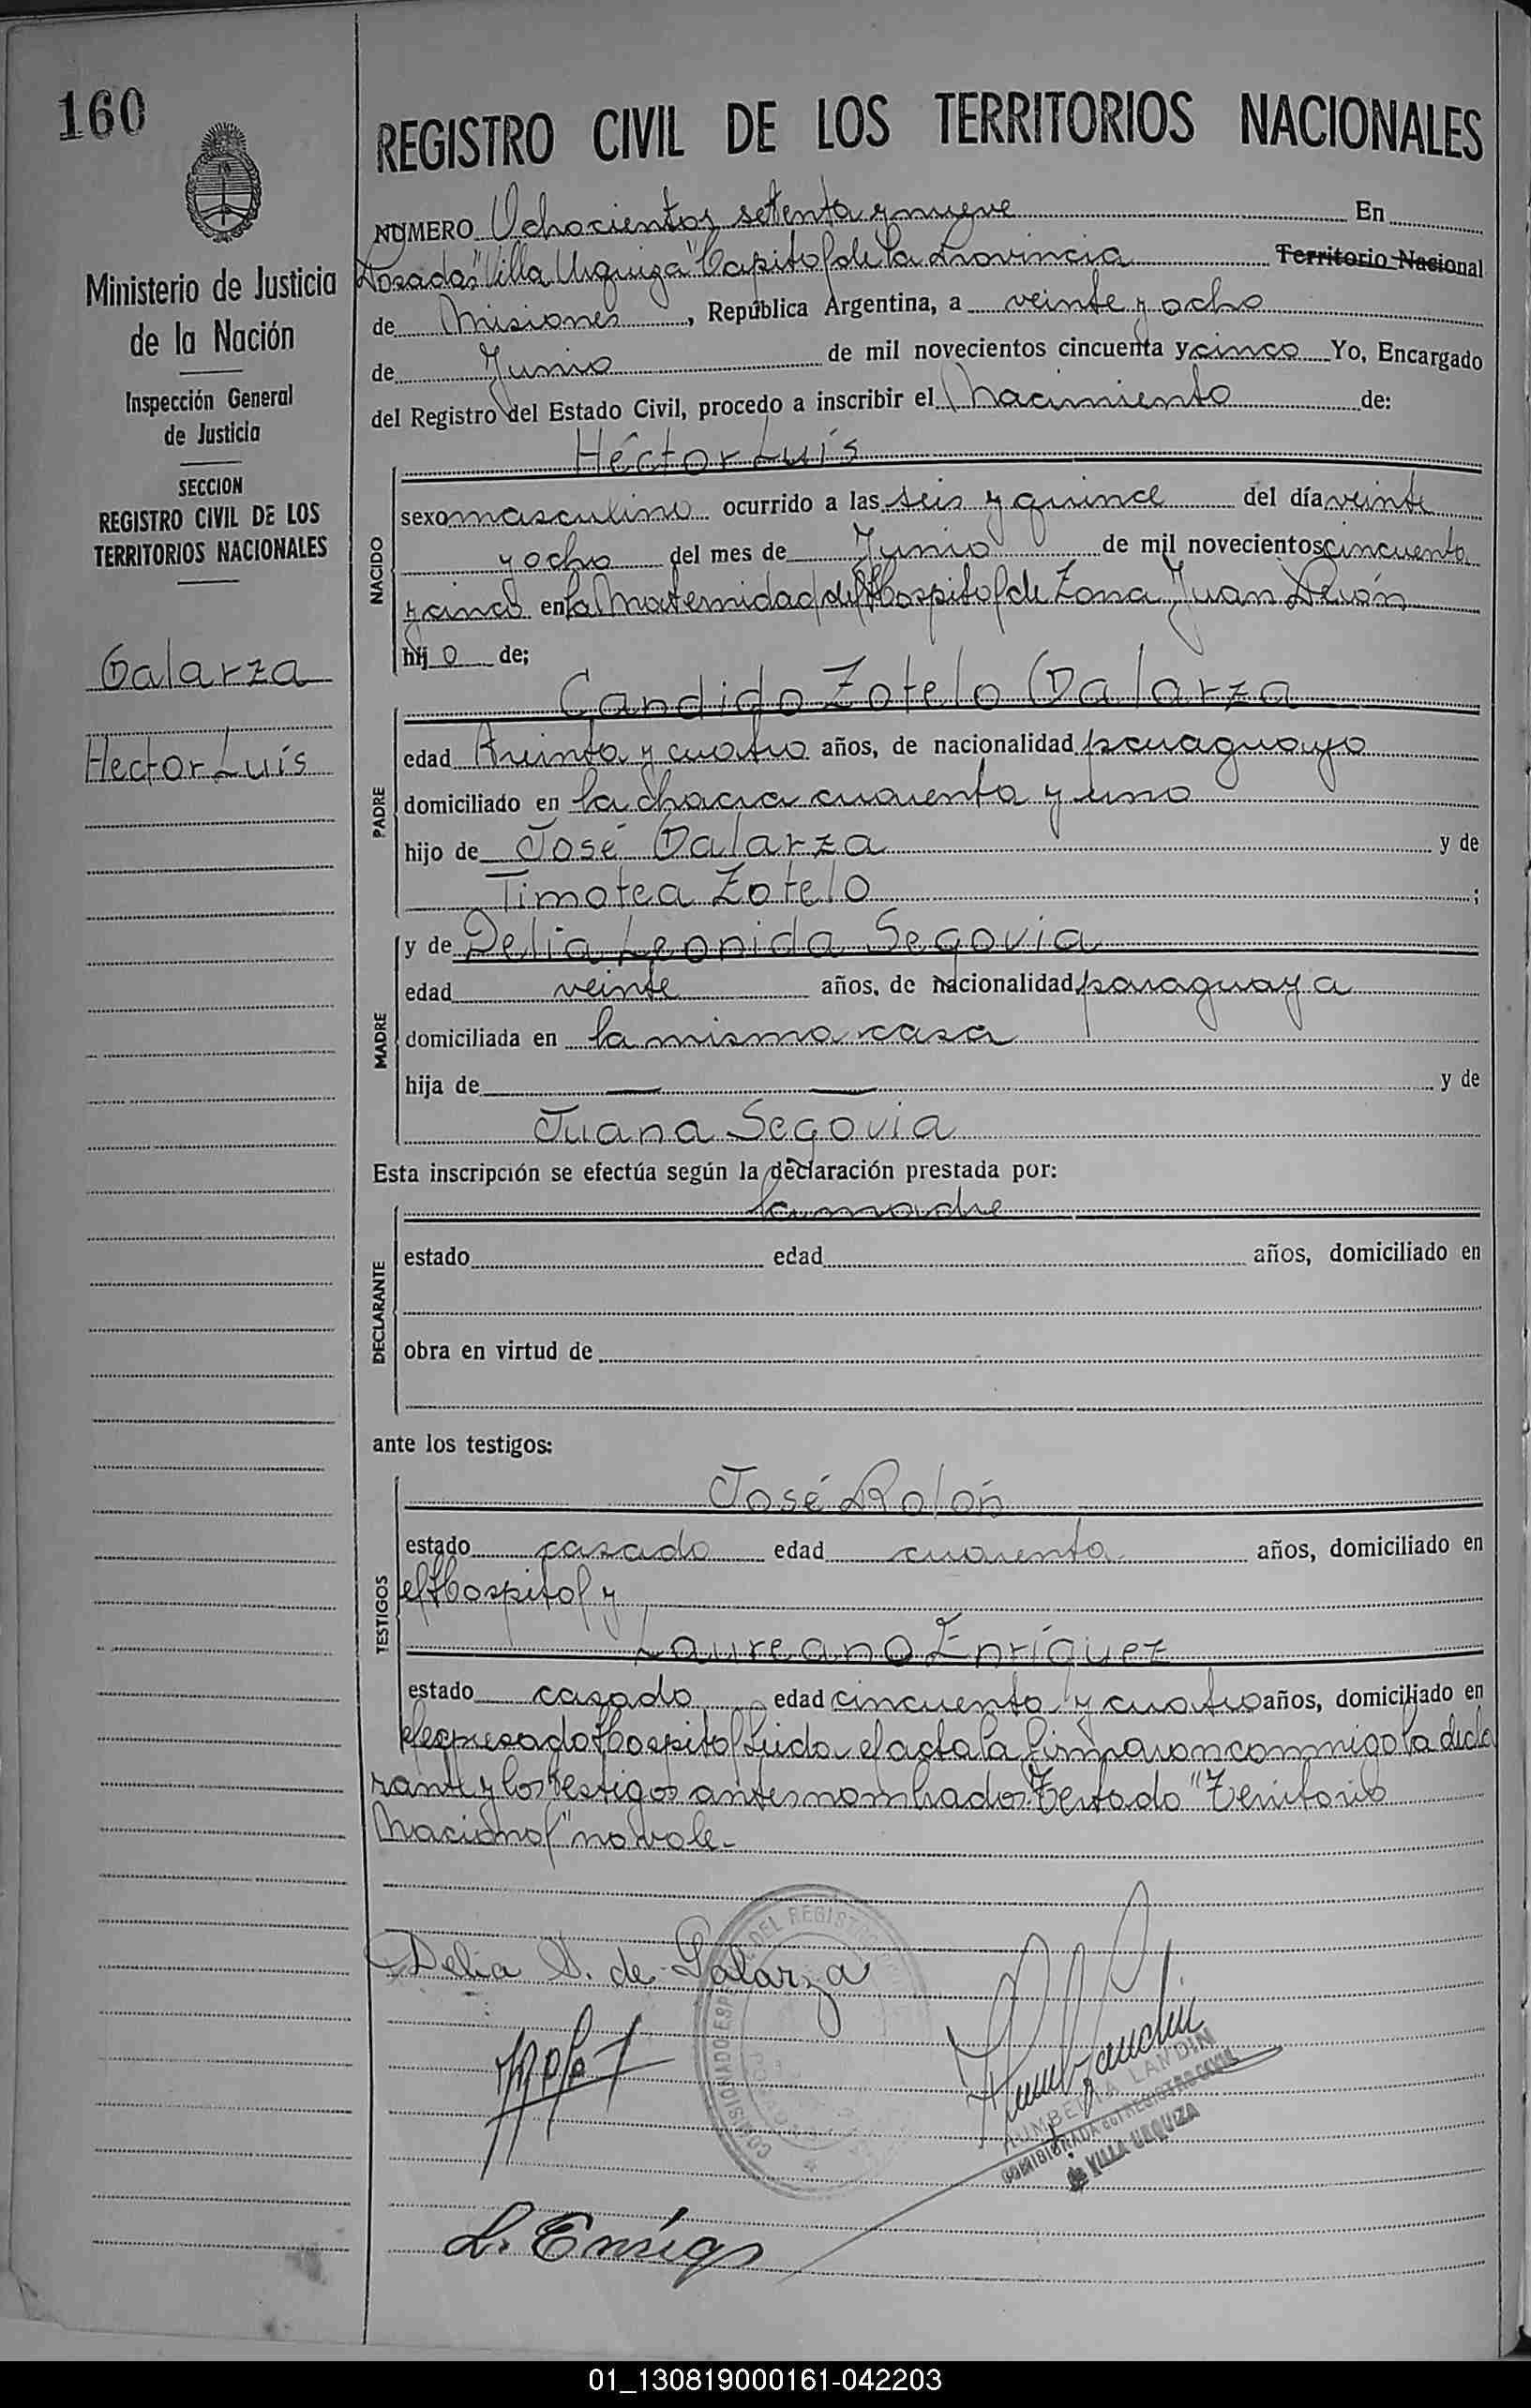 160
Ministerio de Justicia
de la Nación
Inspección General
de Justicia
SECCION
REGISTRO CIVIL DE LOS
TERRITORIOS NACIONALES
Galarza
Hector Luís
REGISTRO CIVIL DE LOS TERRITORIOS NACIONALES
NUMERO Ochocientos setenta y nueve En
Posadas "Villa Urquiza" Capital de la Provincia Territorio Nacional
de Misiones, República Argentina, a veinte y ocho
de Junio de mil novecientos cincuenta y cinco Yo, Encargado
del Registro del Estado Civil, procedo a inscribir el Nacimiento de:
Héctor Luís
NACIDO
sexo masculino ocurrido a las seis y quince del día veinte
y ocho del mes de Junio de mil novecientos cincuenta
y cinco en la Maternidad del Hospital de Zona Juan Perón
hij o de;
Candido Zotelo Galarza
PADRE
edad treinta y cuatro años, de nacionalidad paraguayo
domiciliado en la chacra cuarenta y uno
hijo de José Galarza y de
Timotea Zotelo ;
MADRE
y de Delia Leonida Segovia
edad veinte años, de nacionalidad paraguaya
domiciliada en la misma casa
hija de — — y de
Juana Segovia
Esta inscripción se efectúa según la declaración prestada por:
la madre
DECLARANTE
estado edad años, domiciliado en
obra en virtud de
ante los testigos:
José Rolón
TESTIGOS
estado casado edad cuarenta años, domiciliado en
el Hospital y
Laureano Enríquez
estado casado edad cincuenta y cuatro años, domiciliado en
el expresado Hospital Leida el acta la firmaron conmigo la decla
rante y los testigos antes nombrados Testado "Territorio
Nacional" no vale.-
Delia S. de Galarza
COMISIONADO DEL REGISTRO
HUMBELINA LANDIN
COMISIONADA del REGISTRO CIVIL
de VILLA URQUIZA
01_130819000161-042203